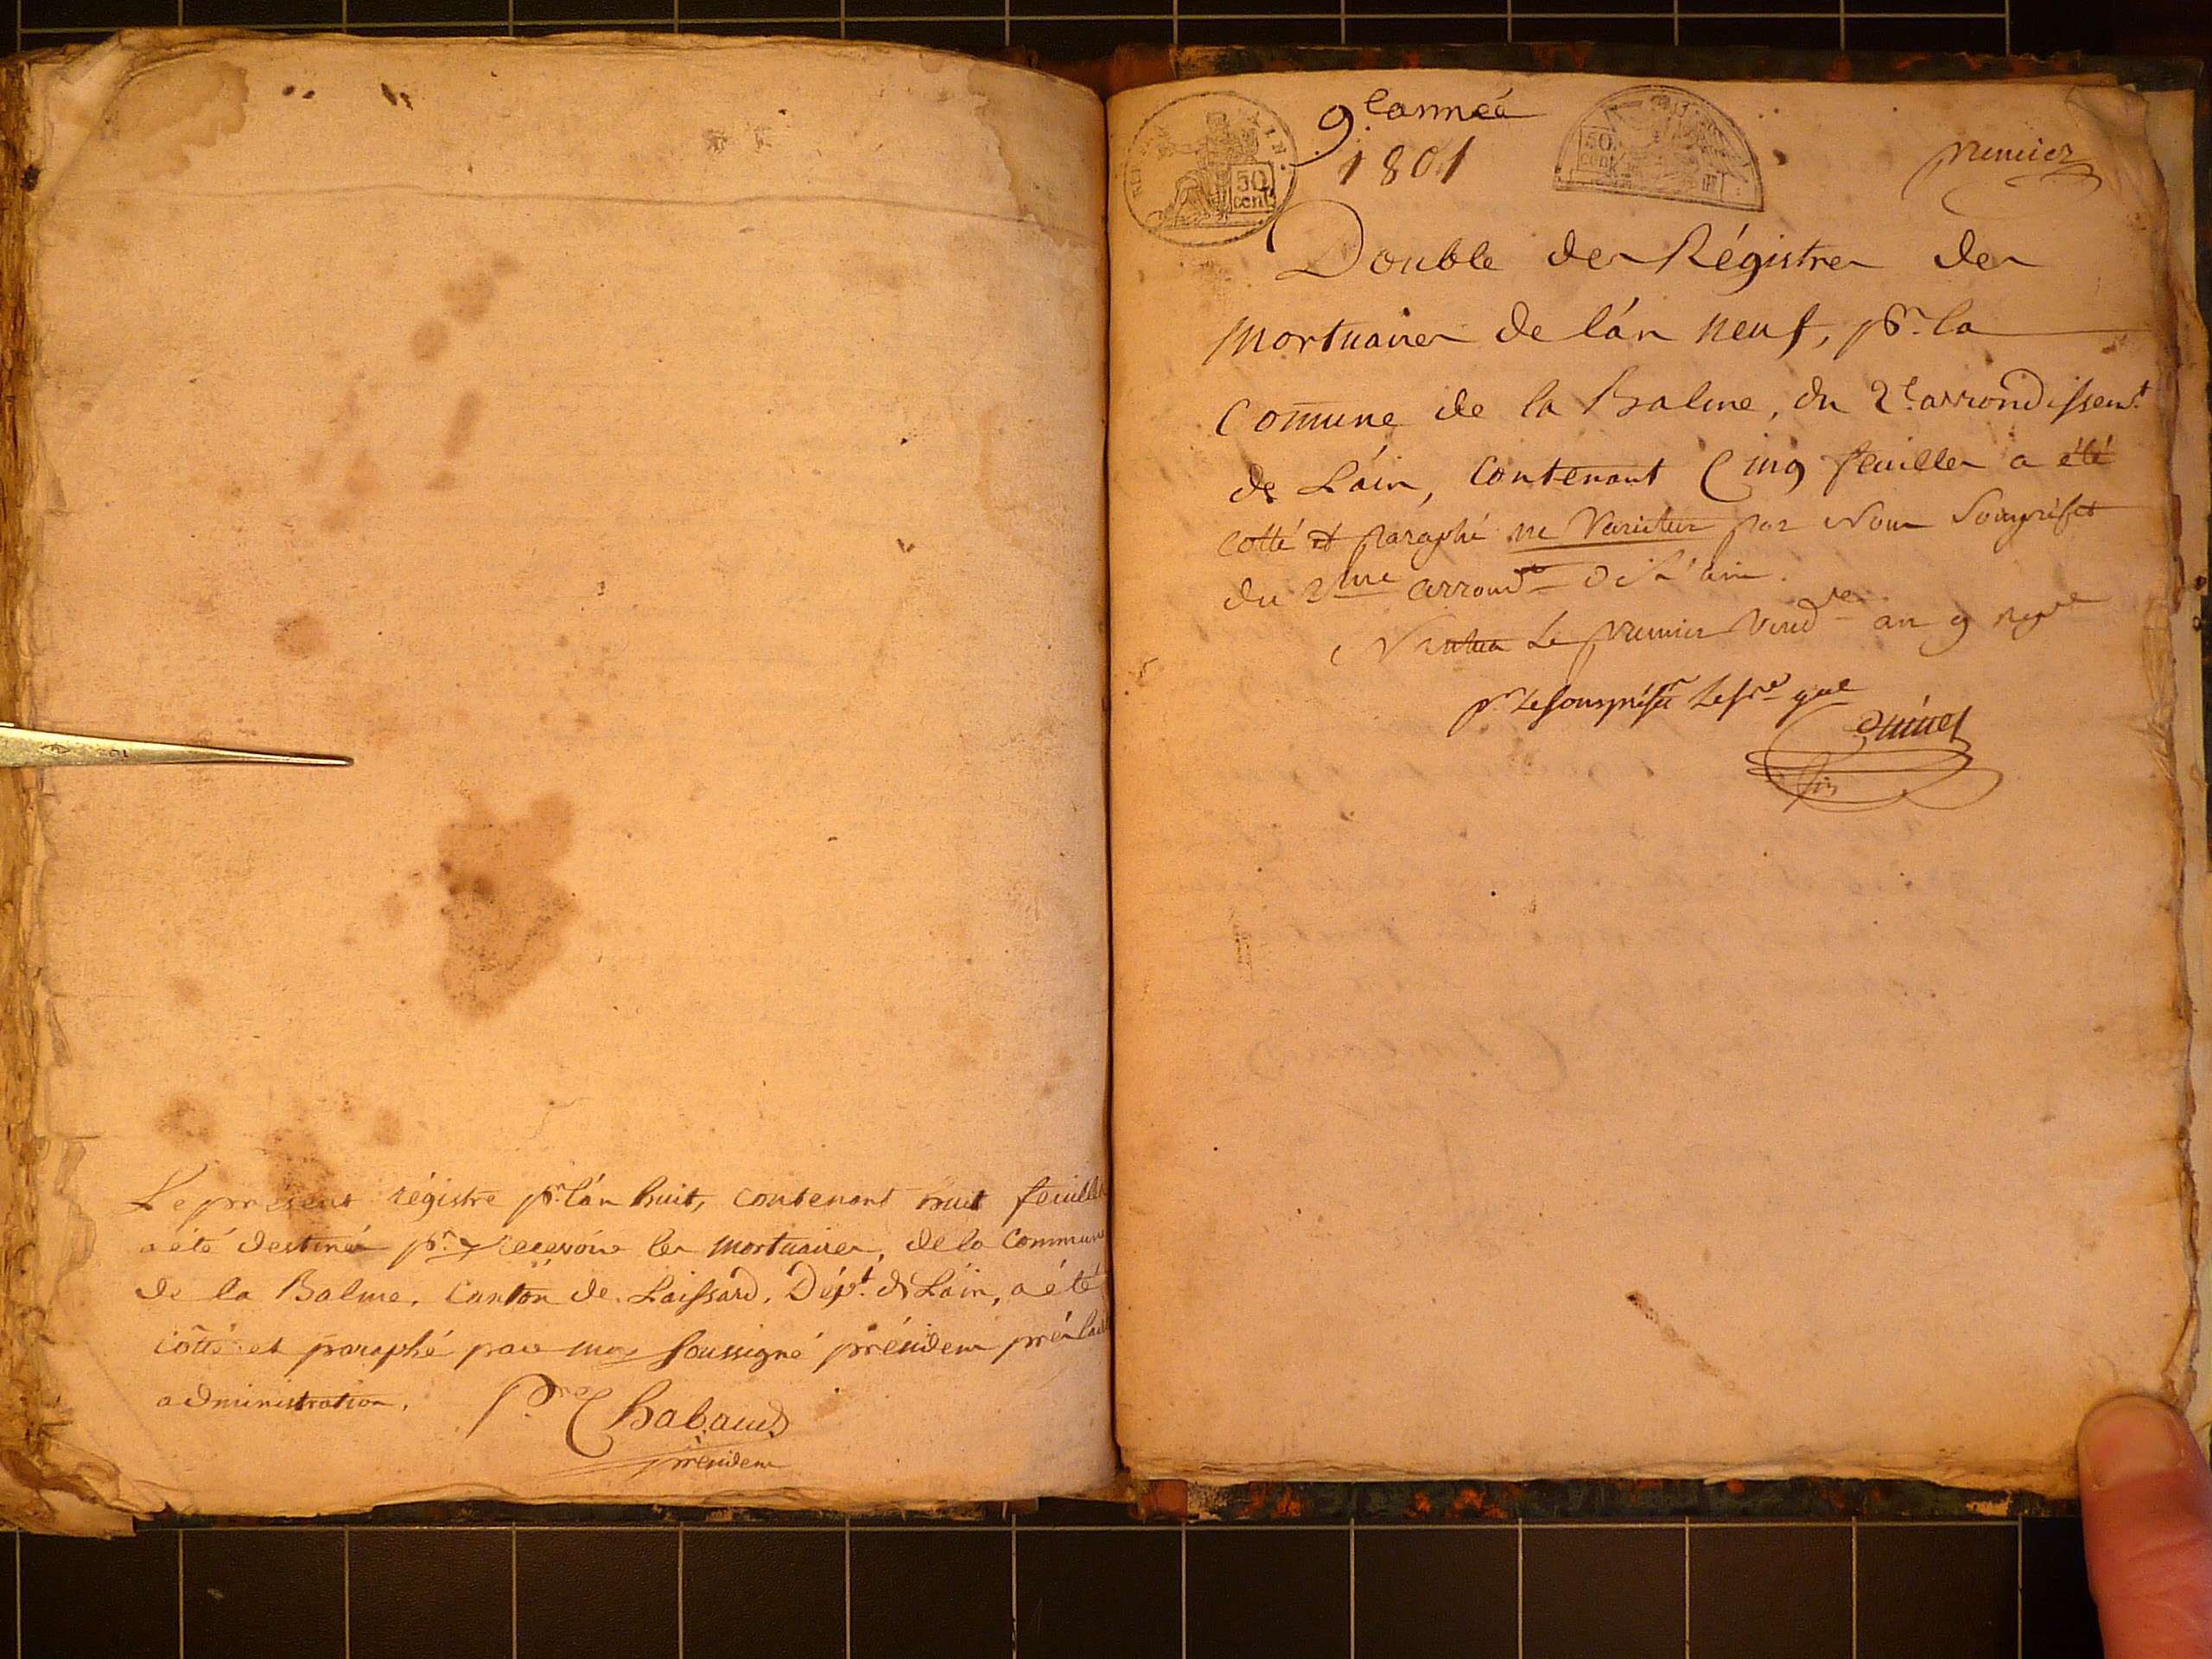 Le présent régistre pr. l'án huit, contenant huit feuilles
a été destinés pr. y recevoir les mortuaires, de la Commune
de la Balme, Canton de Laissard, Dépt. de Láin, a été
cotté et paraphé par moy soussigné présidem
administration.
Chabaud
présidem
9e. année
1801
50 cent.
50 cent.
premier
Double des Régistres des
Mortuaires de l'án neuf, pr. la
Comune de la Balme, du 2e. arrondissemt.
de Láin, contenant Cinq feuilles a été
cotté et paraphé ne Varietur par Nous Souspréfet
du 2me arrondt De L'ain.
Nantua Le premier Vendre an 9
pr Le Souspréfet